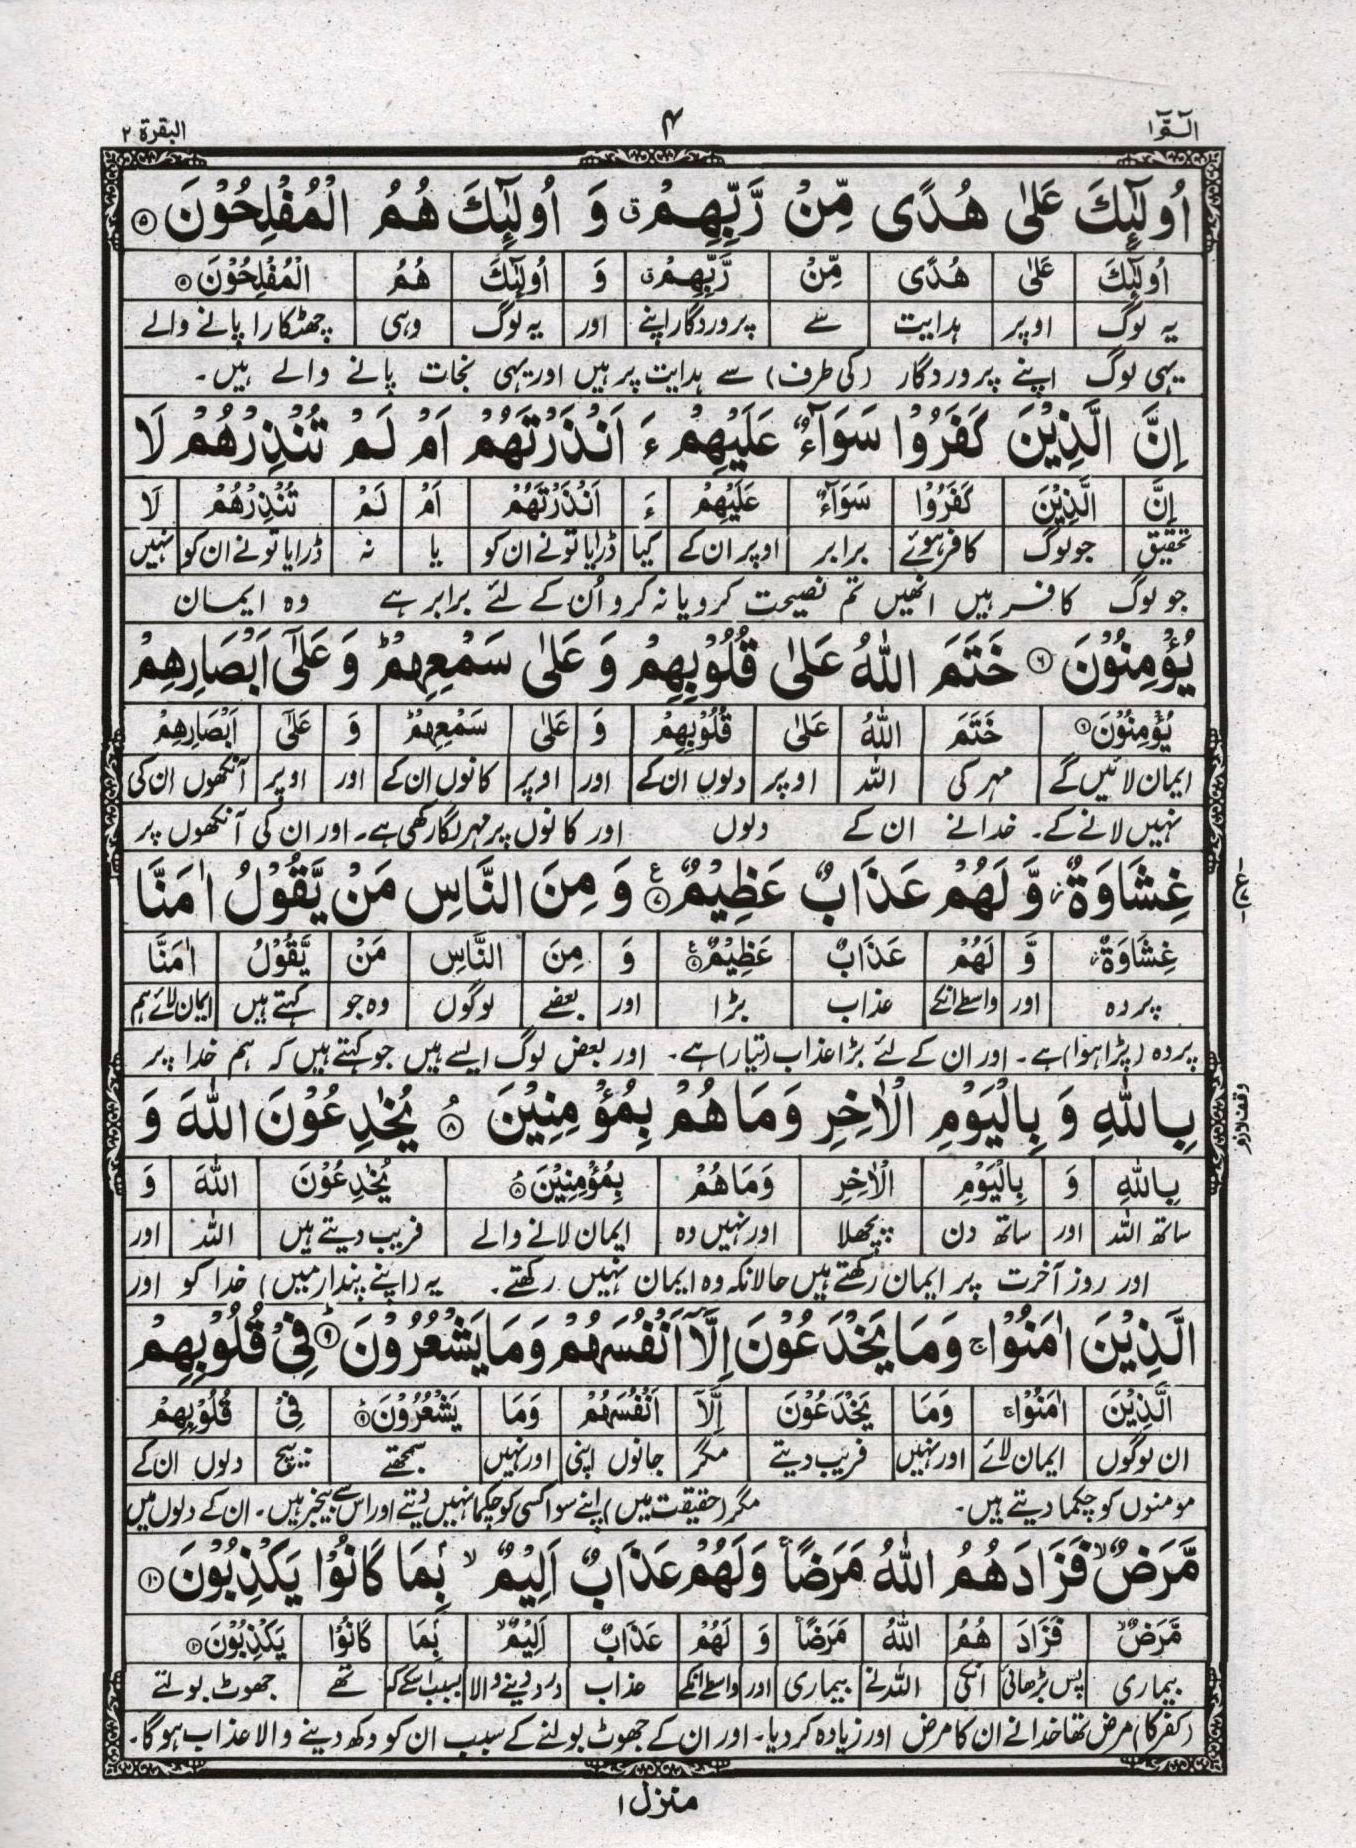 الٓمّٓ ١
۴
البقرة ٢
اُولٰٓئِكَ عَلٰى هُدًى مِّنْ رَّبِّهِمْ ۚ وَ اُولٰٓئِكَ هُمُ الْمُفْلِحُوْنَ ۵
اُولٰٓئِكَ عَلٰى هُدًى مِّنْ رَّبِّهِمْ ۚ وَ اُولٰٓئِكَ هُمُ الْمُفْلِحُوْنَ ۵
یہ لوگ اوپر ہدایت سے پروردگار اپنے اور یہ لوگ وہی چھٹکارا پانے والے
یہی لوگ اپنے پروردگار (کی طرف) سے ہدایت پر ہیں اور یہی نجات پانے والے ہیں۔
اِنَّ الَّذِيْنَ كَفَرُوْا سَوَآءٌ عَلَيْهِمْ ءَ اَنْذَرْتَهُمْ اَمْ لَمْ تُنْذِرْهُمْ لَا
اِنَّ الَّذِيْنَ كَفَرُوْا سَوَآءٌ عَلَيْهِمْ ءَ اَنْذَرْتَهُمْ اَمْ لَمْ تُنْذِرْهُمْ لَا
تحقیق جو لوگ کافر ہوئے برابر اوپر ان کے کیا ڈرایا تونے ان کو یا نہ ڈرایا تونے ان کو نہیں
جو لوگ کافر ہیں انھیں تم نصیحت کرو یا نہ کرو اُن کے لئے برابر ہے وہ ایمان
يُؤْمِنُوْنَ ۶ خَتَمَ اللّٰهُ عَلٰى قُلُوْبِهِمْ وَ عَلٰى سَمْعِهِمْ ؕ وَ عَلٰٓى اَبْصَارِهِمْ
يُؤْمِنُوْنَ ۶ خَتَمَ اللّٰهُ عَلٰى قُلُوْبِهِمْ وَ عَلٰى سَمْعِهِمْ ؕ وَ عَلٰٓى اَبْصَارِهِمْ
ایمان لائیں گے مہر کی اللہ اوپر دلوں ان کے اور اوپر کانوں ان کے اور اوپر آنکھوں ان کی
نہیں لانے کے۔ خدا نے ان کے دلوں اور کانوں پر مہر لگا رکھی ہے۔ اور ان کی آنکھوں پر
غِشَاوَةٌ ز وَّ لَهُمْ عَذَابٌ عَظِيْمٌ ۷ ع وَ مِنَ النَّاسِ مَنْ يَّقُوْلُ اٰمَنَّا
غِشَاوَةٌ ز وَّ لَهُمْ عَذَابٌ عَظِيْمٌ ۷ ع وَ مِنَ النَّاسِ مَنْ يَّقُوْلُ اٰمَنَّا
پردہ اور واسطے انکے عذاب بڑا اور بعضے لوگوں وہ جو کہتے ہیں ایمان لائے ہم
پردہ (پڑا ہوا) ہے۔ اور ان کے لئے بڑا عذاب (تیار) ہے۔ اور بعض لوگ ایسے ہیں جو کہتے ہیں کہ ہم خدا پر
بِاللّٰهِ وَ بِالْيَوْمِ الْاٰخِرِ وَمَا هُمْ بِمُؤْمِنِيْنَ ۘ ۸ يُخٰدِعُوْنَ اللّٰهَ وَ
وقف لازم
بِاللّٰهِ وَ بِالْيَوْمِ الْاٰخِرِ وَمَا هُمْ بِمُؤْمِنِيْنَ ۘ ۸ يُخٰدِعُوْنَ اللّٰهَ وَ
ساتھ اللہ اور ساتھ دن پچھلا اور نہیں وہ ایمان لانے والے فریب دیتے ہیں اللہ اور
اور روز آخرت پر ایمان رکھتے ہیں حالانکہ وہ ایمان نہیں رکھتے۔ یہ (اپنے پندار میں) خدا کو اور
الَّذِيْنَ اٰمَنُوْا ۚ وَمَا يَخْدَعُوْنَ اِلَّآ اَنْفُسَهُمْ وَمَا يَشْعُرُوْنَ ؕ ۹ فِيْ قُلُوْبِهِمْ
الَّذِيْنَ اٰمَنُوْا ۚ وَمَا يَخْدَعُوْنَ اِلَّآ اَنْفُسَهُمْ وَمَا يَشْعُرُوْنَ ؕ ۹ فِيْ قُلُوْبِهِمْ
ان لوگوں ایمان لائے اور نہیں فریب دیتے مگر جانوں اپنی اور نہیں سمجھتے بیچ دلوں ان کے
مومنوں کو چکما دیتے ہیں۔ مگر (حقیقت میں) اپنے سوا کسی کو چکما نہیں دیتے اور اس سے بیخبر ہیں۔ ان کے دلوں میں
مَّرَضٌ ۙ فَزَادَهُمُ اللّٰهُ مَرَضًا ۚ وَلَهُمْ عَذَابٌ اَلِيْمٌ ۙ بِمَا كَانُوْا يَكْذِبُوْنَ ۱۰
مَّرَضٌ ۙ فَزَادَ هُمُ اللّٰهُ مَرَضًا ۚ وَ لَهُمْ عَذَابٌ اَلِيْمٌ ۙ بِمَا كَانُوْا يَكْذِبُوْنَ ۱۰
بیماری پس بڑھائی انکی اللہ نے بیماری اور واسطے انکے عذاب درد دینے والا بسبب اسکے کہ تھے جھوٹ بولتے
(کفر کا) مرض تھا خدا نے ان کا مرض اور زیادہ کر دیا۔ اور ان کے جھوٹ بولنے کے سبب ان کو دکھ دینے والا عذاب ہوگا۔
منزل ۱